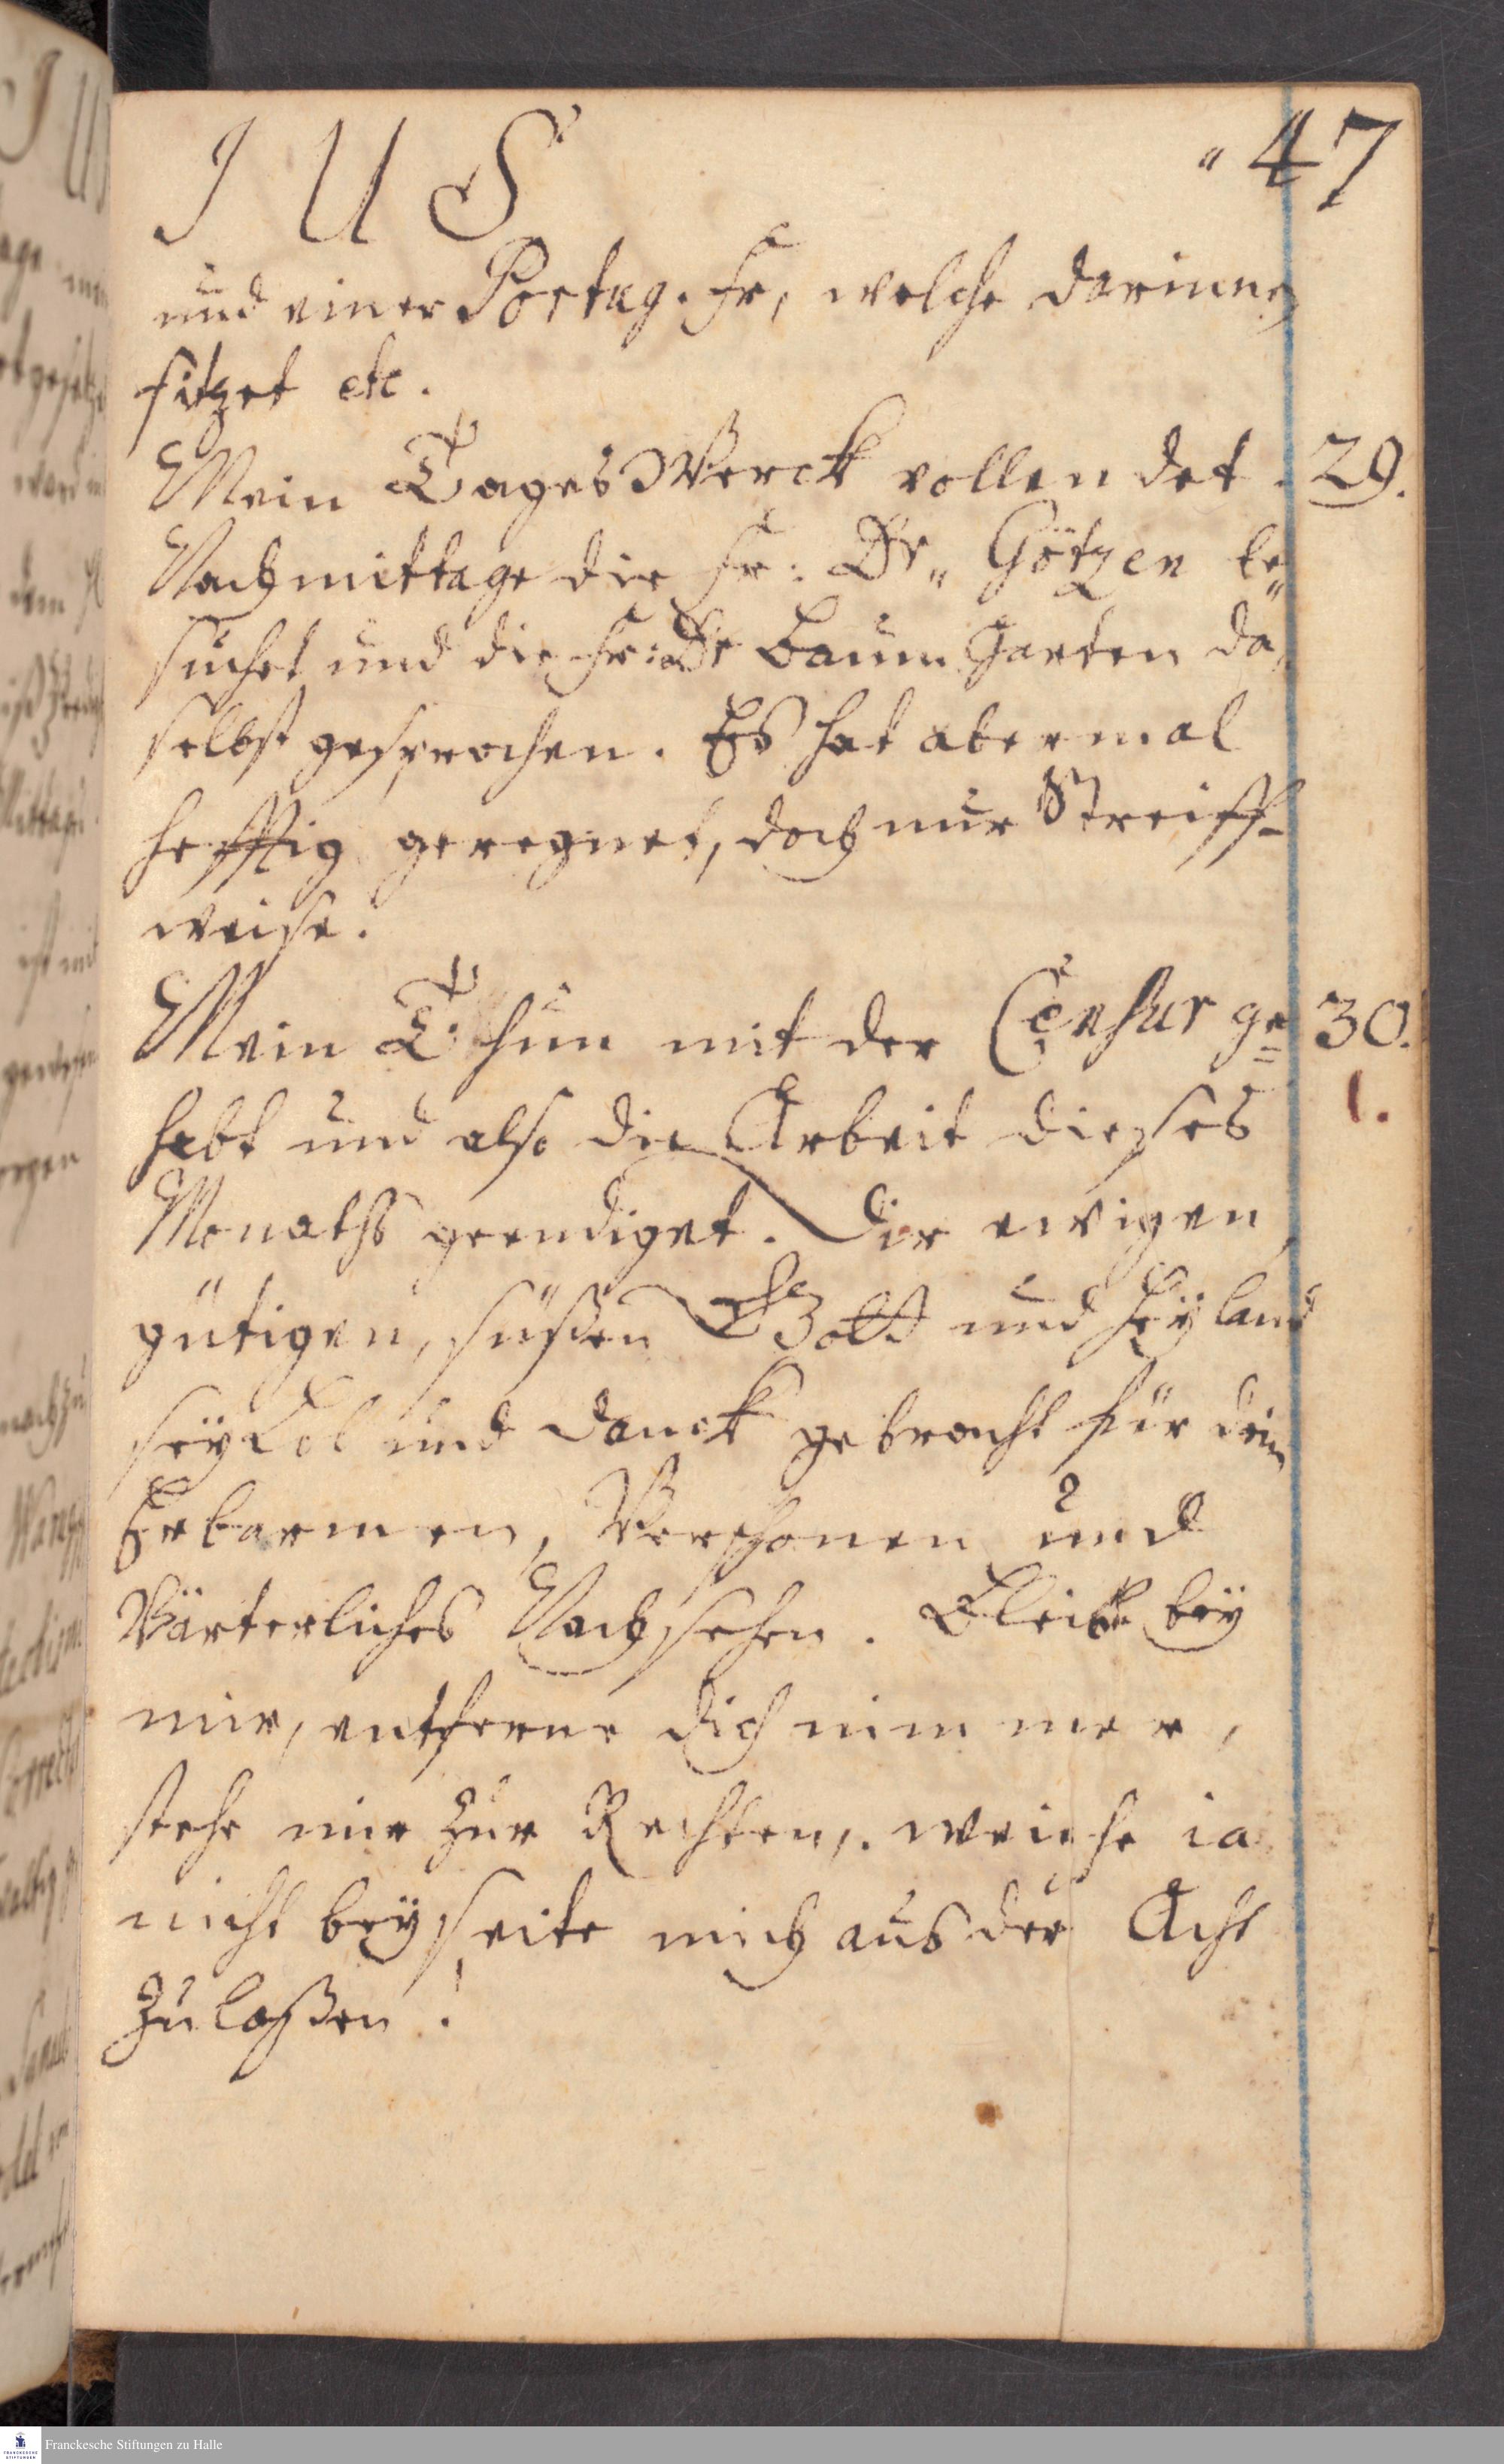 I U S
47
und einer Portug. Fr, welche darinne
sitzet etc.
Mein Tages Werck vollendet. 29.
Nachmittage die Fr: Dr„ Götzen be„
suchet und die Fr: Dr Baum Garten da„
selbst gesprochen. Es hat abermal
hefftig geregnet, doch nur Streiff-
weise.
Mein Thun mit der Censur ge= 30.
habt und also die Arbeit dieses 1.
Monaths geendiget. Dir ewigen,
gütigen, süßen Gott und Heyland
sey Lob und Danck gebracht für dein
Erbarmen, Verschonen und
Värterliches Nachsehen. Bleibe bey
mir, entferne dich nimmer,
stehe mir zur Rechten, weiche ia
nicht beyseite mich aus der Acht
zu laßen!
Franckesche Stiftungen zu Halle